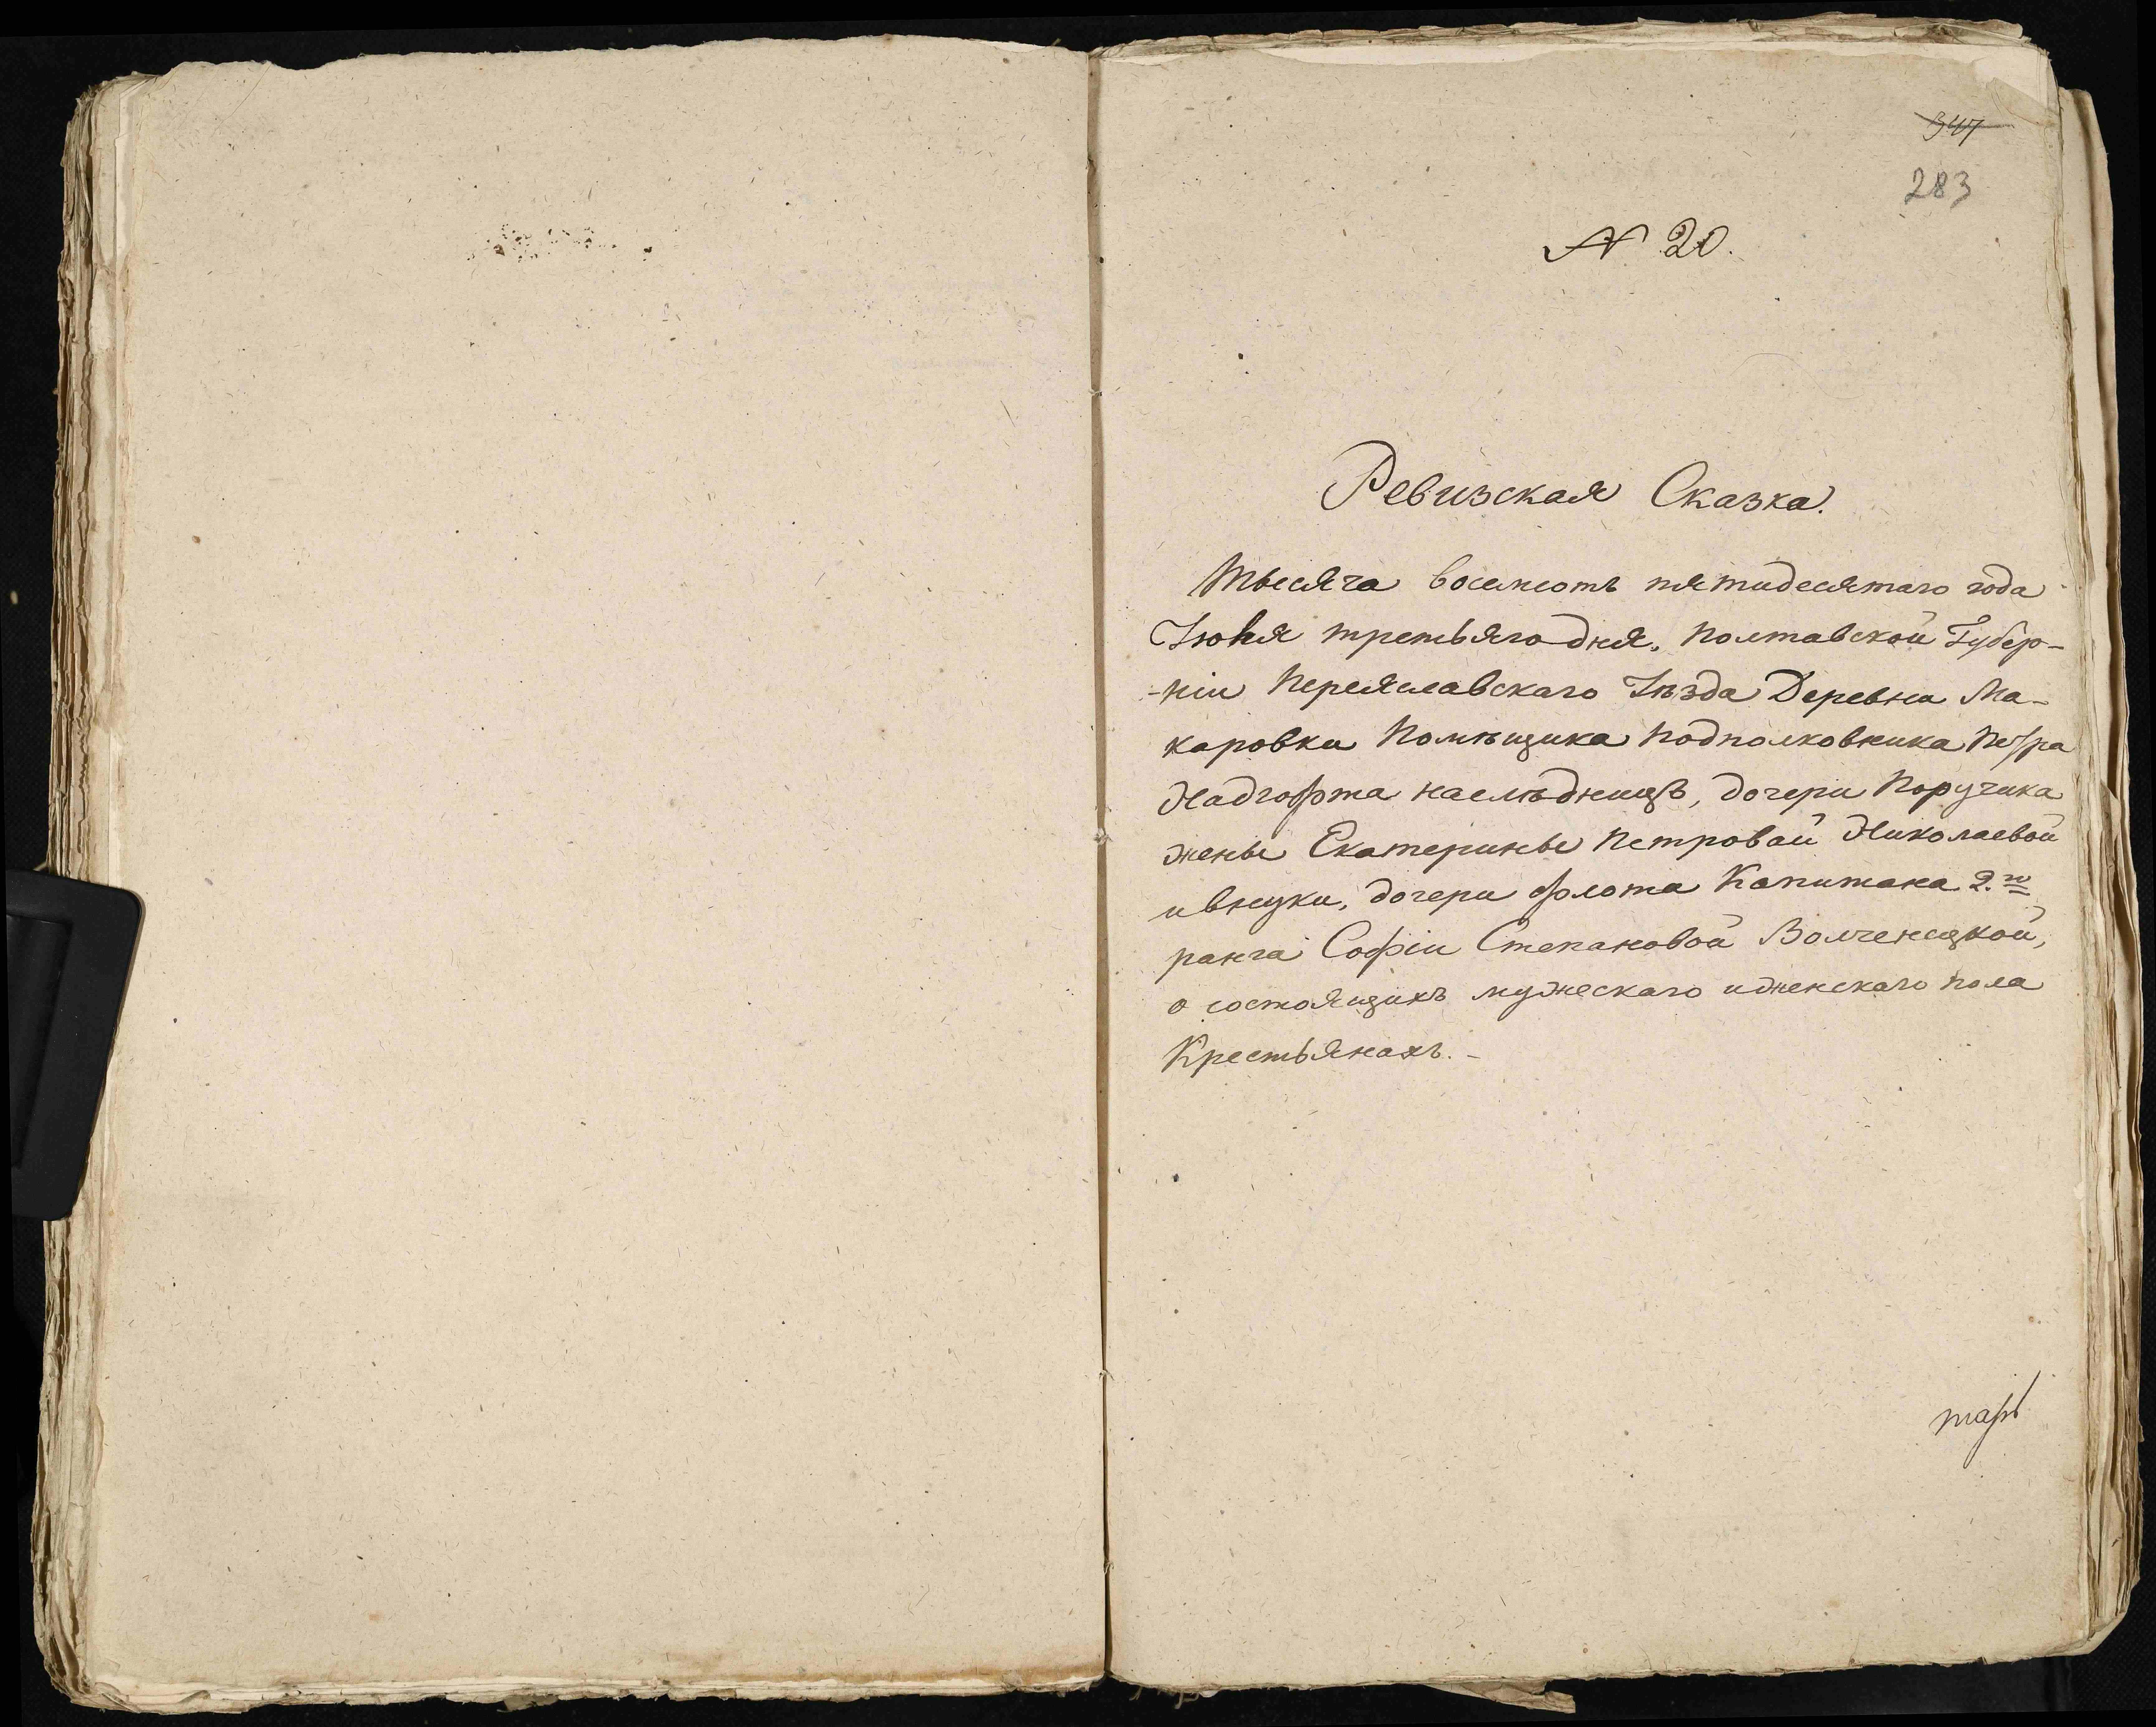 347
283
N 20.
Ревизская Сказка.
Тысяча восемсотъ пятидесятаго года
Іюня третьяго дня, Полтавской Губер-
-ніи Переяславскаго Уѣзда Деревни Ма-
каровки Помѣщика Подполковника Петра
наслѣдницъ, дочери Поручика
жены Екатерины Петровой Николаевой
и внуки, дочери флота Капитана 2.го
ранга Софіи Степановой
о состоящихъ мужескаго и женскаго пола
Крестьянахъ.-